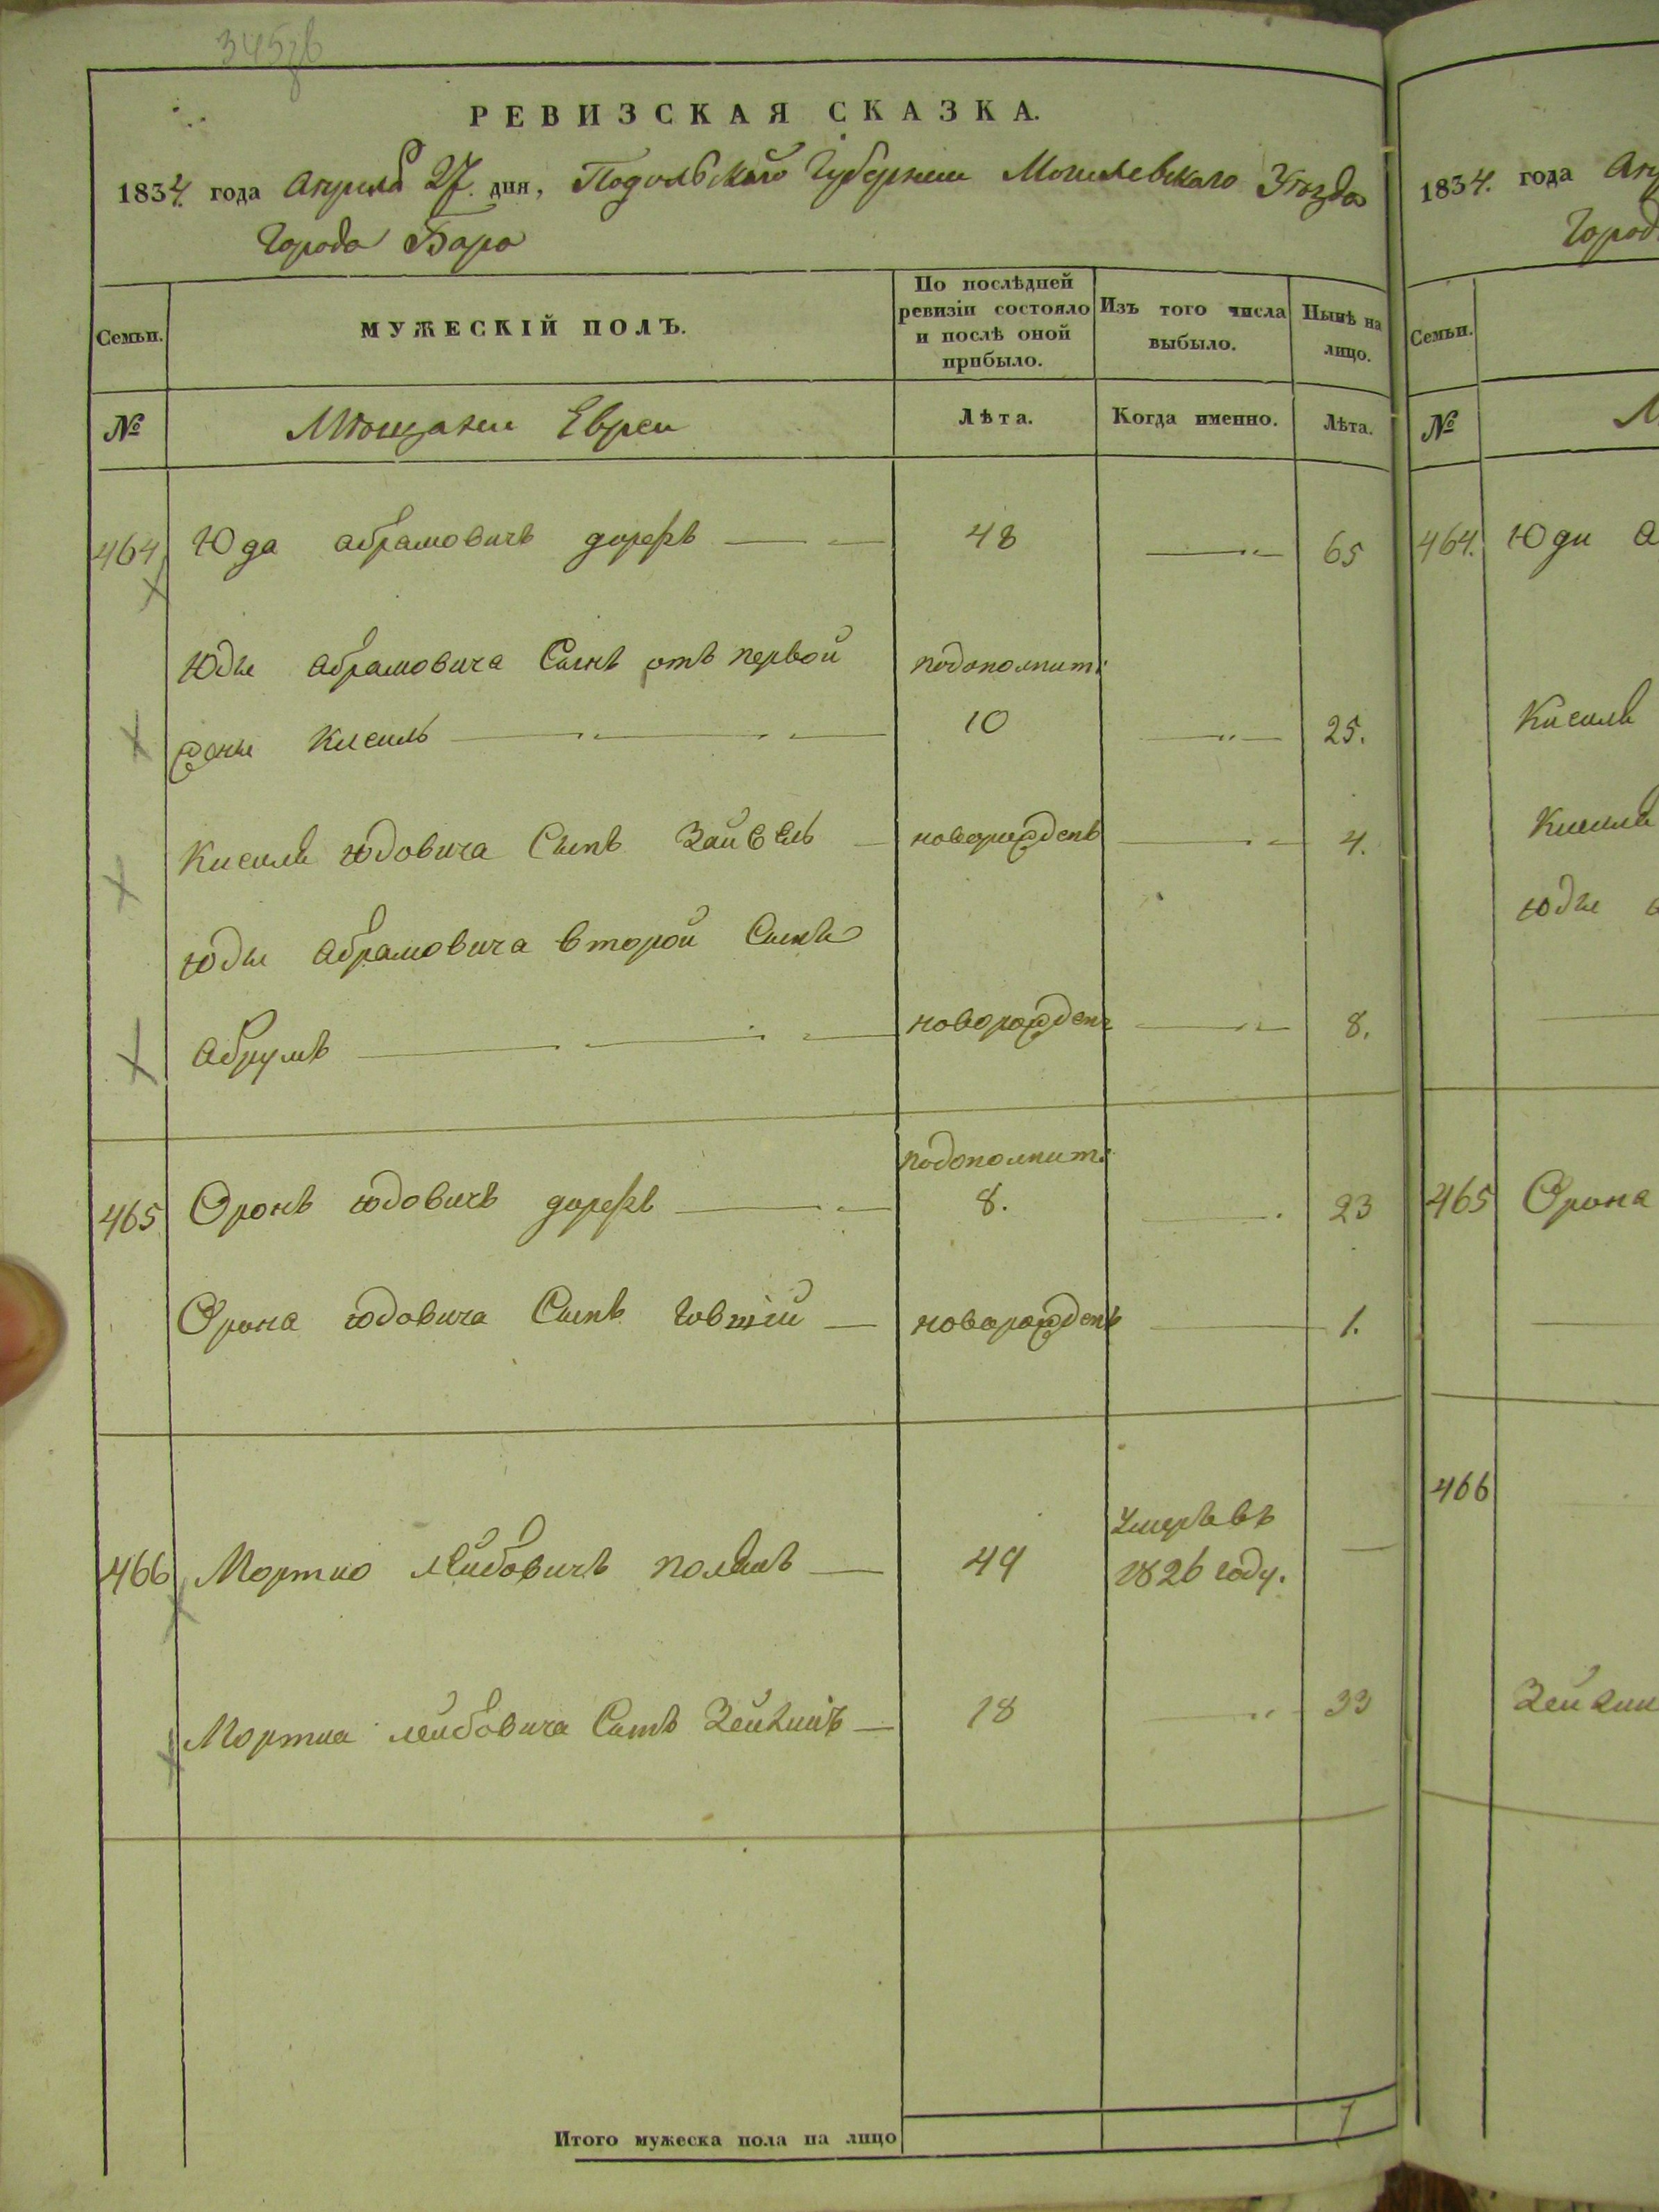 РЕВИЗСКАЯ СКАЗКА.
1834. года Апреля 27. дня, Подольской Губернии Могилевского Уѣзда
Города Бара
Семьи.
МУЖЕСКІЙ ПОЛЪ.
По послѣдней ревизіи состояло и послѣ оной прибыло.
Изъ того числа выбыло.
Нынѣ на лицо.
№
Мѣщане Евреи
Лѣта.
Когда именно.
Лѣта.
464 Юда Абрамовичъ 48 65
Юды Абрамовича Сынъ отъ первой подополнит:
жены Кисиль 10 25.
Кисиля Юдовича Сынъ Зайвель новорожденъ 4.
Юды Абрамовича второй Сынъ
Абрумъ новорожден 8.
подополнит:
465 Оронъ Юдовичъ 8. 23
Орона Юдовича Сынъ Говшій новорожденъ 1.
Умеръ въ
466 Мортко Лейбовичъ 49 1826 году.
Мортка Лейбовича Сынъ 18 33
Итого мужеска пола на лицо 7
1834. года
Семьи.
№
464. Юди
Кисиля
Кисиля
Юды
465 Орона
466